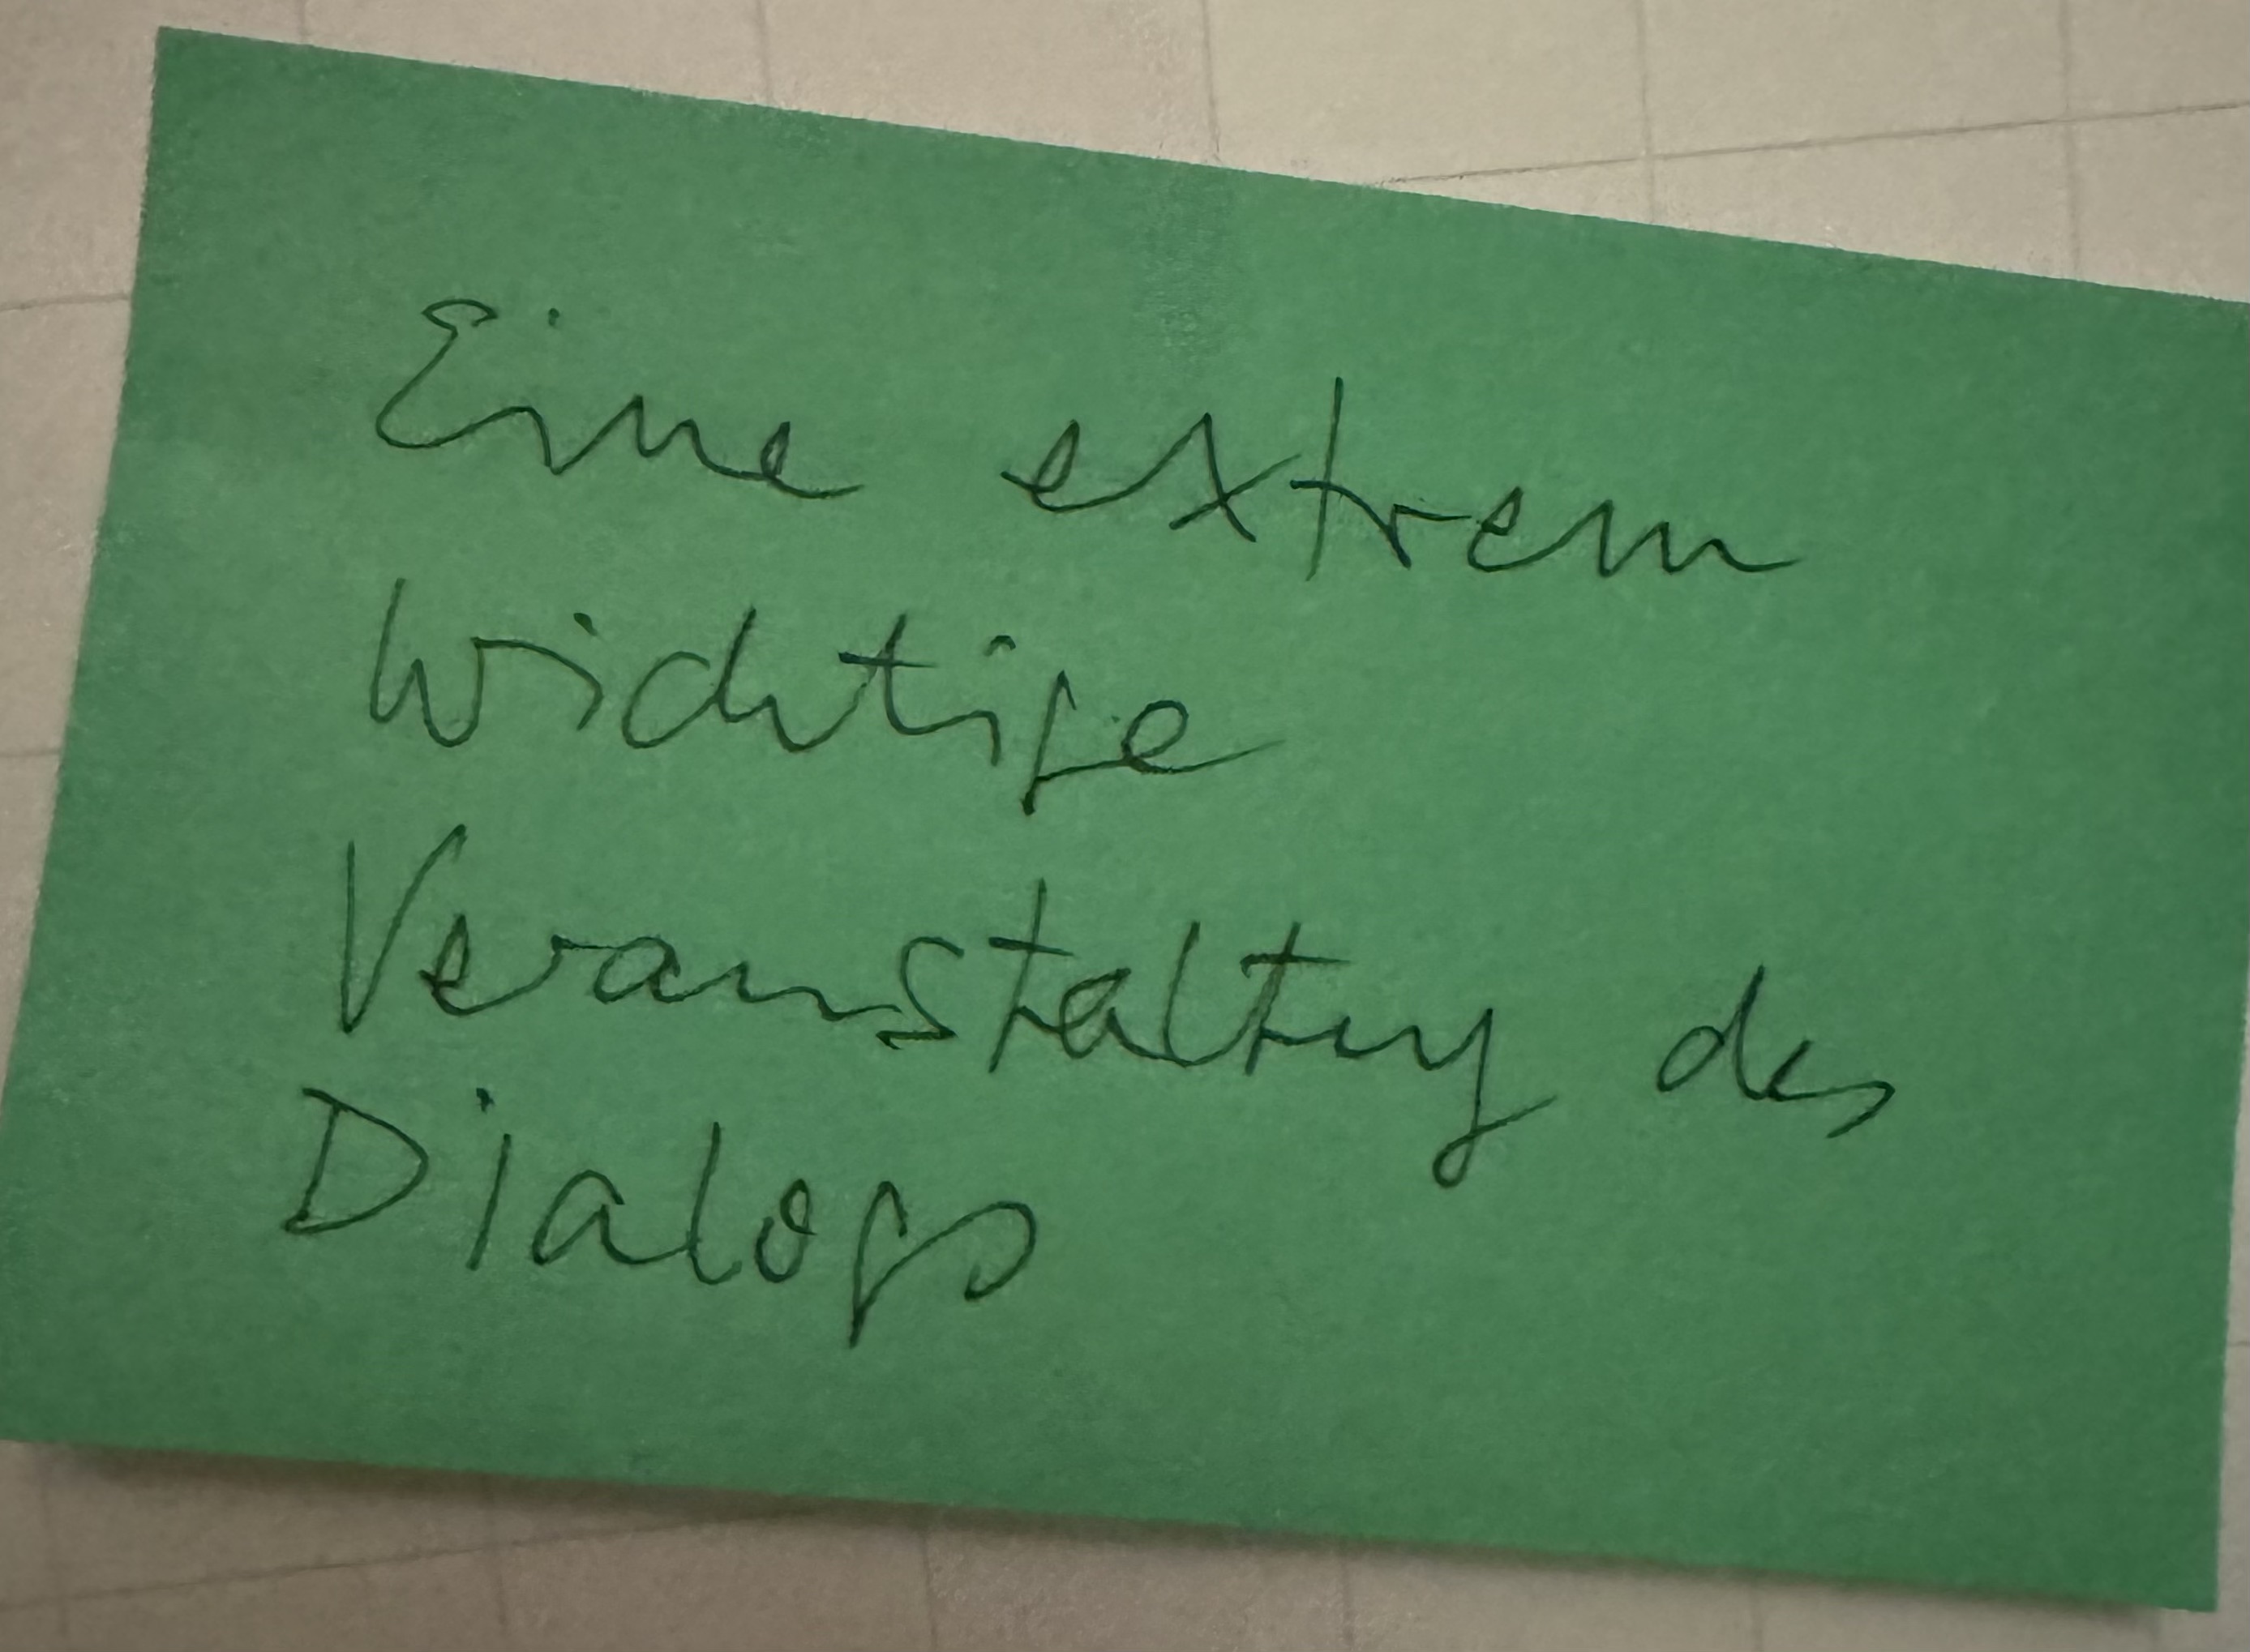 Eine extrem
wichtige
Veranstaltung des
Dialogs